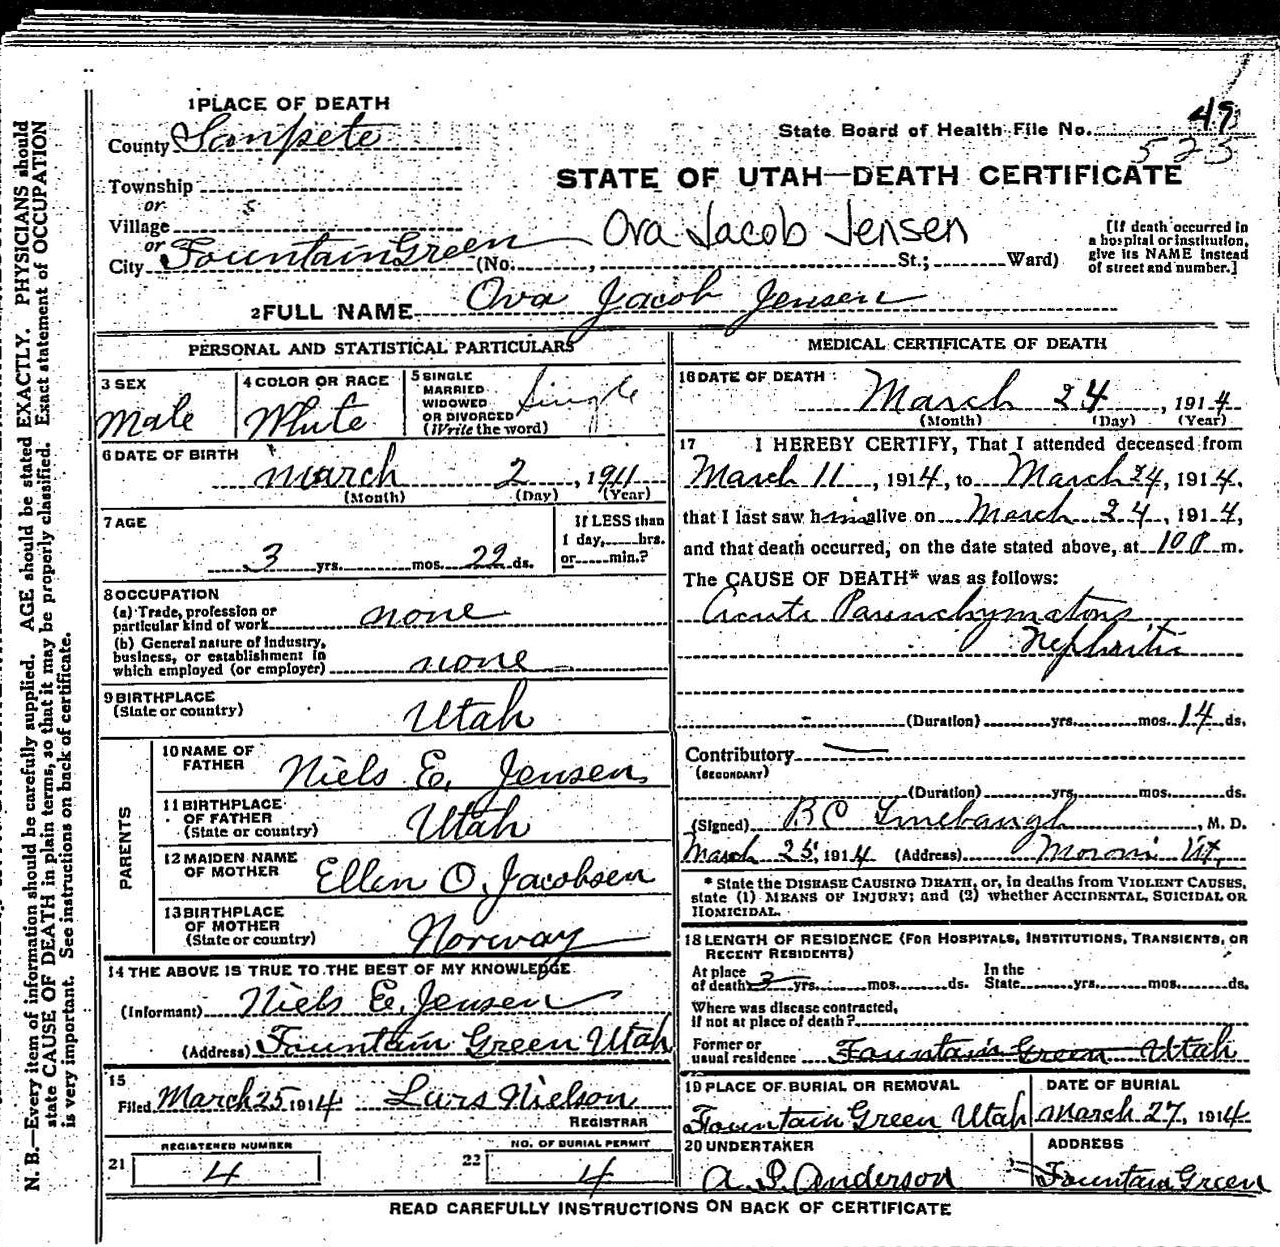 N. B.—Every item of information should be carefully supplied. AGE should be stated EXACTLY. PHYSICIANS should
state CAUSE OF DEATH in plain terms, so that it may be properly classified. Exact statement of OCCUPATION
is very important. See instructions on back of certificate.
1 PLACE OF DEATH
County Sanpete
State Board of Health File No. 49
525
Township
or
STATE OF UTAH—DEATH CERTIFICATE
Village
or
Ova Jacob Jensen
City Fountain Green (No. , St.; Ward)
[If death occurred in
a hospital or institution,
give its NAME instead
of street and number.]
2 FULL NAME Ova Jacob Jensen
PERSONAL AND STATISTICAL PARTICULARS
3 SEX
Male
4 COLOR OR RACE
White
5 SINGLE
MARRIED
WIDOWED
OR DIVORCED
(Write the word)
Single
6 DATE OF BIRTH
March 2, 1911
(Month) (Day) (Year)
7 AGE
3 yrs. mos. 22 ds.
If LESS than
1 day, hrs.
or min.?
8 OCCUPATION
(a) Trade, profession or
particular kind of work none
(b) General nature of industry,
business, or establishment in
which employed (or employer) none
9 BIRTHPLACE
(State or country)
Utah
PARENTS
10 NAME OF
FATHER
Niels E. Jensen
11 BIRTHPLACE
OF FATHER
(State or country)
Utah
12 MAIDEN NAME
OF MOTHER
Ellen O. Jacobsen
13 BIRTHPLACE
OF MOTHER
(State or country)
Norway
14 THE ABOVE IS TRUE TO THE BEST OF MY KNOWLEDGE
(Informant) Niels E. Jensen
(Address) Fountain Green Utah
15
Filed March 25 1914 Lars Nielson
REGISTRAR
REGISTERED NUMBER
21 4
NO. OF BURIAL PERMIT
22 4
MEDICAL CERTIFICATE OF DEATH
16 DATE OF DEATH
March 24, 1914
(Month) (Day) (Year)
17 I HEREBY CERTIFY, That I attended deceased from
March 11, 1914, to March 24, 1914,
that I last saw him alive on March 24, 1914,
and that death occurred, on the date stated above, at m.
The CAUSE OF DEATH* was as follows:
Acute Parenchymatous
Nephritis
(Duration) yrs. mos. 14 ds.
Contributory
(SECONDARY)
(Duration) yrs. mos. ds.
(Signed) , M. D.
March 25, 1914 (Address) Moroni Ut.
* State the DISEASE CAUSING DEATH, or, in deaths from VIOLENT CAUSES,
state (1) MEANS OF INJURY; and (2) whether ACCIDENTAL, SUICIDAL OR
HOMICIDAL.
18 LENGTH OF RESIDENCE (FOR HOSPITALS, INSTITUTIONS, TRANSIENTS, OR
RECENT RESIDENTS)
At place
of death 3 yrs. mos. ds.
In the
State yrs. mos. ds.
Where was disease contracted,
if not at place of death?
Former or
usual residence Fountain Green Utah
19 PLACE OF BURIAL OR REMOVAL
Fountain Green Utah
DATE OF BURIAL
March 27, 1914
20 UNDERTAKER
A. P. Anderson
ADDRESS
Fountain Green
READ CAREFULLY INSTRUCTIONS ON BACK OF CERTIFICATE